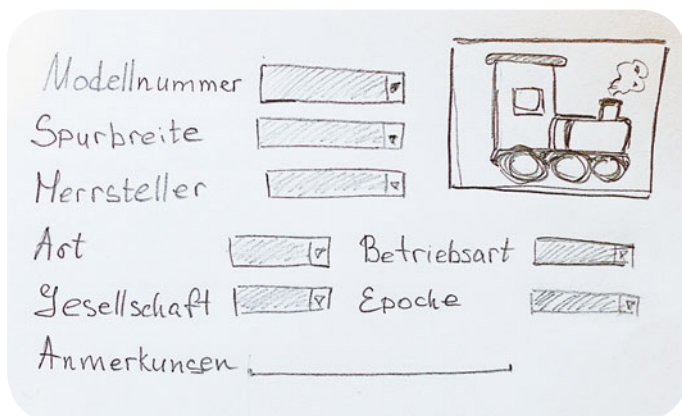 Modellnummer
Spurbreite
Herrsteller
Art Betriebsart
Gesellschaft Epoche
Anmerkungen